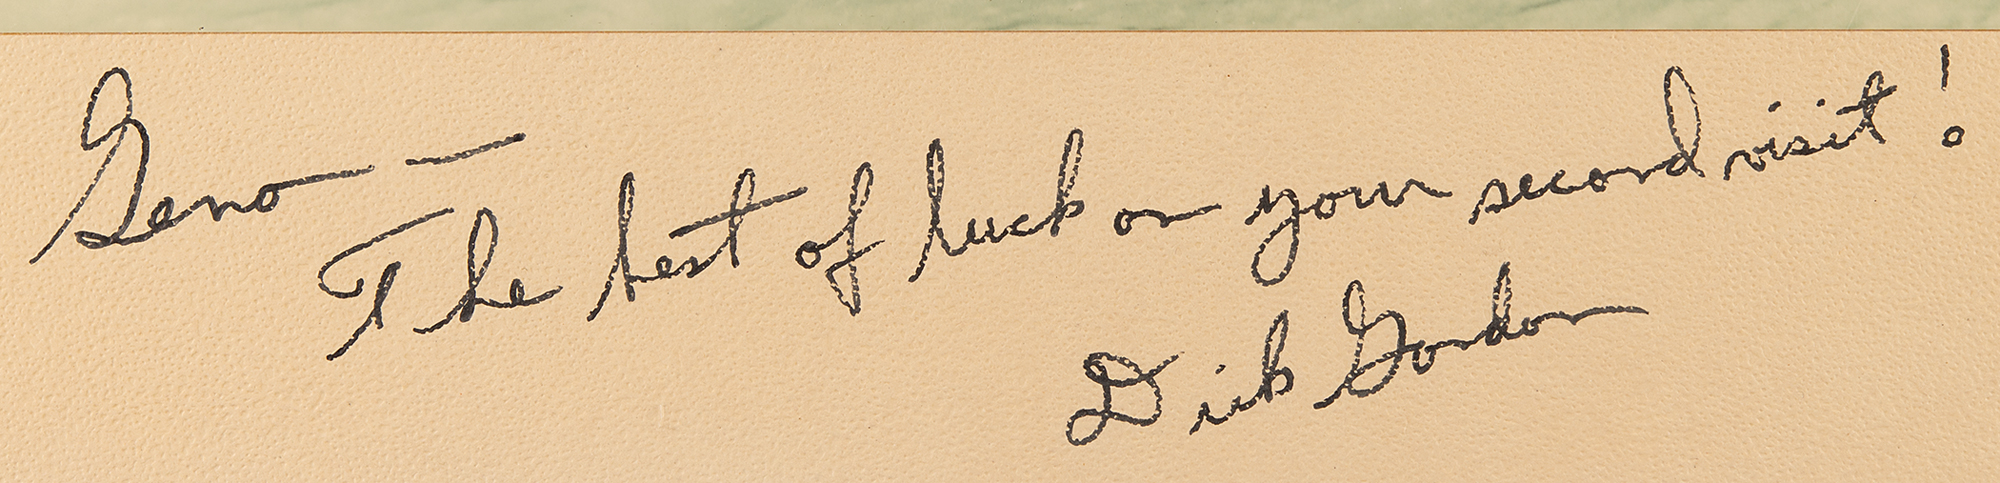 Geno —
The best of luck on your second visit!
Dick Gordon